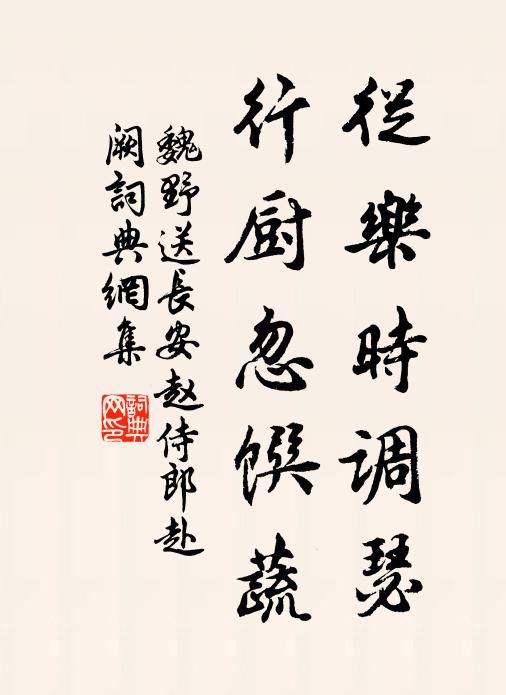 從樂時調瑟
行厨忽饌蔬
魏野送長安赵侍郎赴
阙詞典網集
詞典
网印